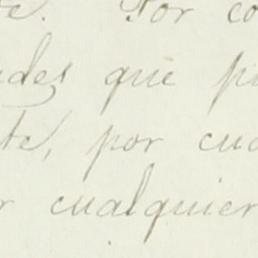 te. Por co
ades que pu
te, por cua
r cualquier